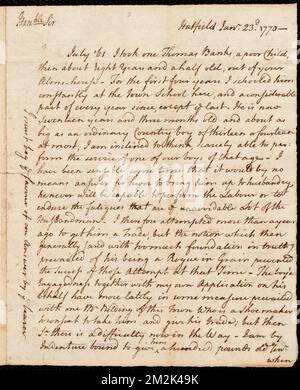 Hon.ble Sir
Hatfield Janr. 23d. 1770—
July '61 I took one Thomas Banks, a poor Child,
then about Eight Years and a half old, out of your
Alms-house— For the first four years I schooled him
constantly at the Town School here, and a considerable
part of every year since, except ye last. He is now
Seventeen years and three months old and about as
big as an ordinary Country boy of thirteen or fourteen
at most, I am inclined to think, scarcely able to per:
form the service of one of our boys of that age— I
have been sensible some time that it would by no
means answer for him to bring him up to husbandry,
he never will be capable to perform the Labour or to
endure the fatigues that are unavoidable Lot of the
Husbandman: I therefore attempted more than a year
ago to get him a Trade, but the notion which then
generally (and with too much foundation in truth)
prevailed of his being a Rogue in Grain prevented
the success of those Attempts at that Time— The boys
Engagedness together with my own Application on his
behalf have more lately in some measure prevailed
with one Mr. of this Town Who is a shoemaker
to consent to take him and give him a Trade, but then
Sr. there is a difficulty now in the Way— I am by
Indenture bound to give him a hundred pounds old Tenr.
when
I must beg ye favour of an Answer by ye bearer
alamy
Image ID: 2M2K49K
www.alamy.com